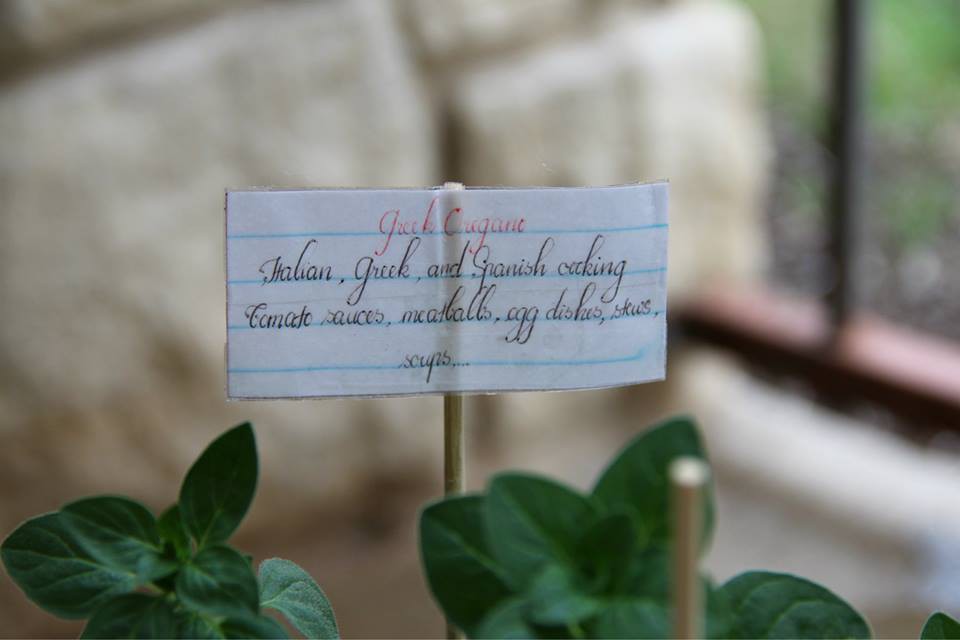 Greek Oregano
Italian, Greek, and Spanish cooking
Tomato sauces, meatballs, egg dishes, stews,
soups,...